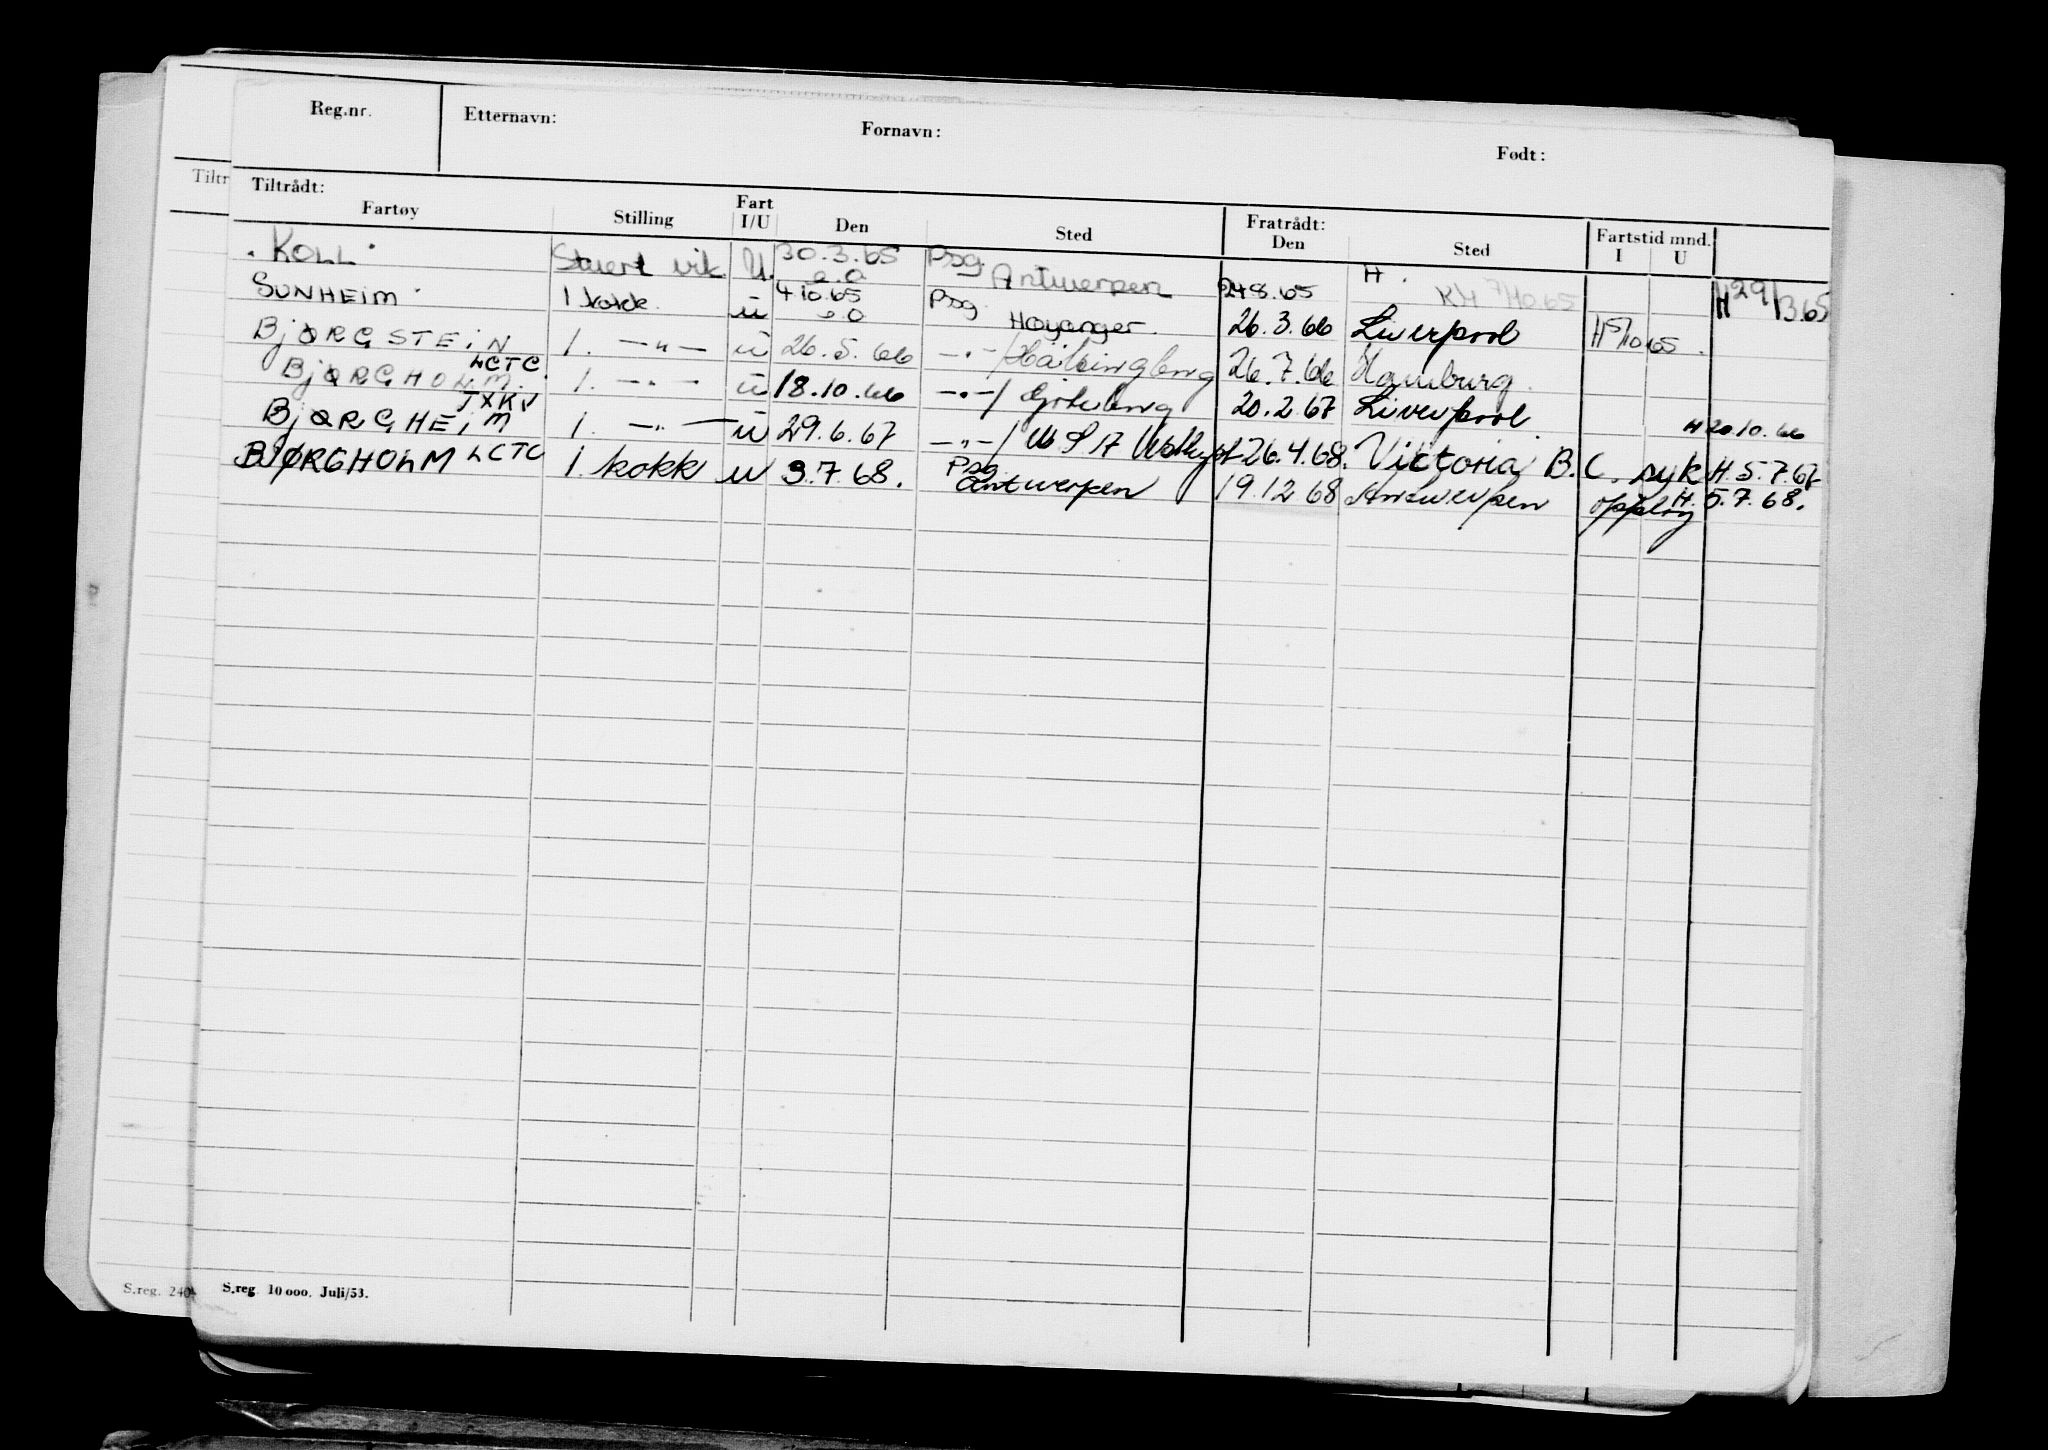 Reg.nr. Etternavn: Fornavn: Født:
Tiltr Tiltrådt: Fratrådt:
Fartøy Stilling Fart I/U Den Sted Den Sted Fartstid mnd. I U
KOLL Stuert vik U. 30.3.65 Psg. Antwerpen 24.8.65 H. KH 7/10.65 H 29/3.65
e.o
SUNHEIM 1 kokk ü 4.10.65 Psg. Høyanger. 26.3.66 Liverpool H 5/10 65.
e.o
BjØRGSTEiN 1. —"— ü 26.5.66 —"—/Hälsingborg 26.7.66 Hamburg.
LCTC.
BjØRGHOLM. 1. —"— ü 18.10.66 —"—/ Göteborg 20.2.67 Liverpool H 20.10.66
JXKV
BjØRGHEiM 1. —"— ü 29.6.67 —"—/ USA 26.4.68. Victoria B.C. syk H. 5.7.67
BJØRGHOLM LCTC 1. kokk u 3.7.68. Psg. Antwerpen 19.12.68 Antwerpen opplag H. 5.7.68.
S.reg. 240 S.reg. 10 000. Juli/53.